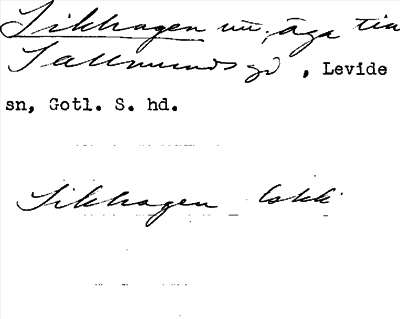 Sikhagen nu. äga till
Sallmunds gd , Levide
sn, Gotl. S. hd.
Sikhagen lokk